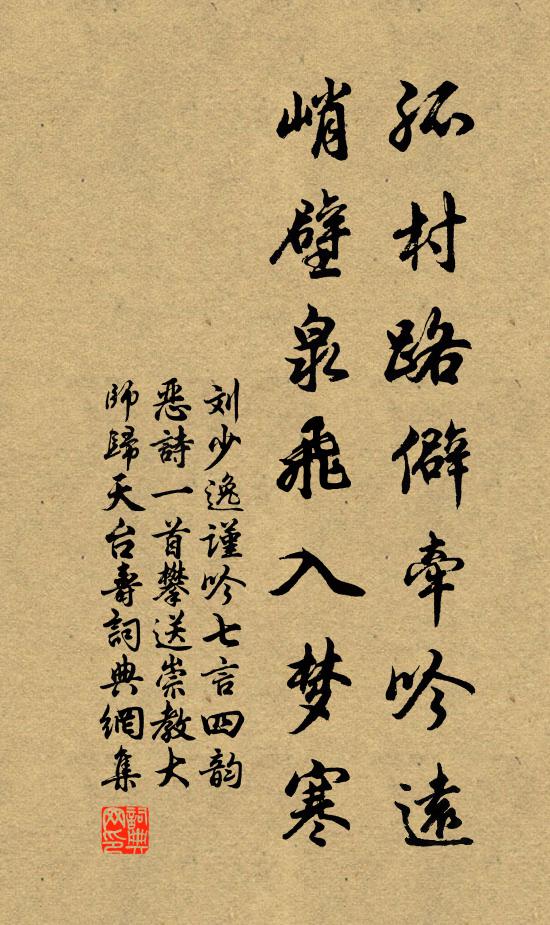 孤村路僻牵吟遠
峭壁泉飛入梦寒
刘少逸谨吟七言四韵
恶詩一首攀送崇教大
師歸天台寿詞典網集
詞典网印